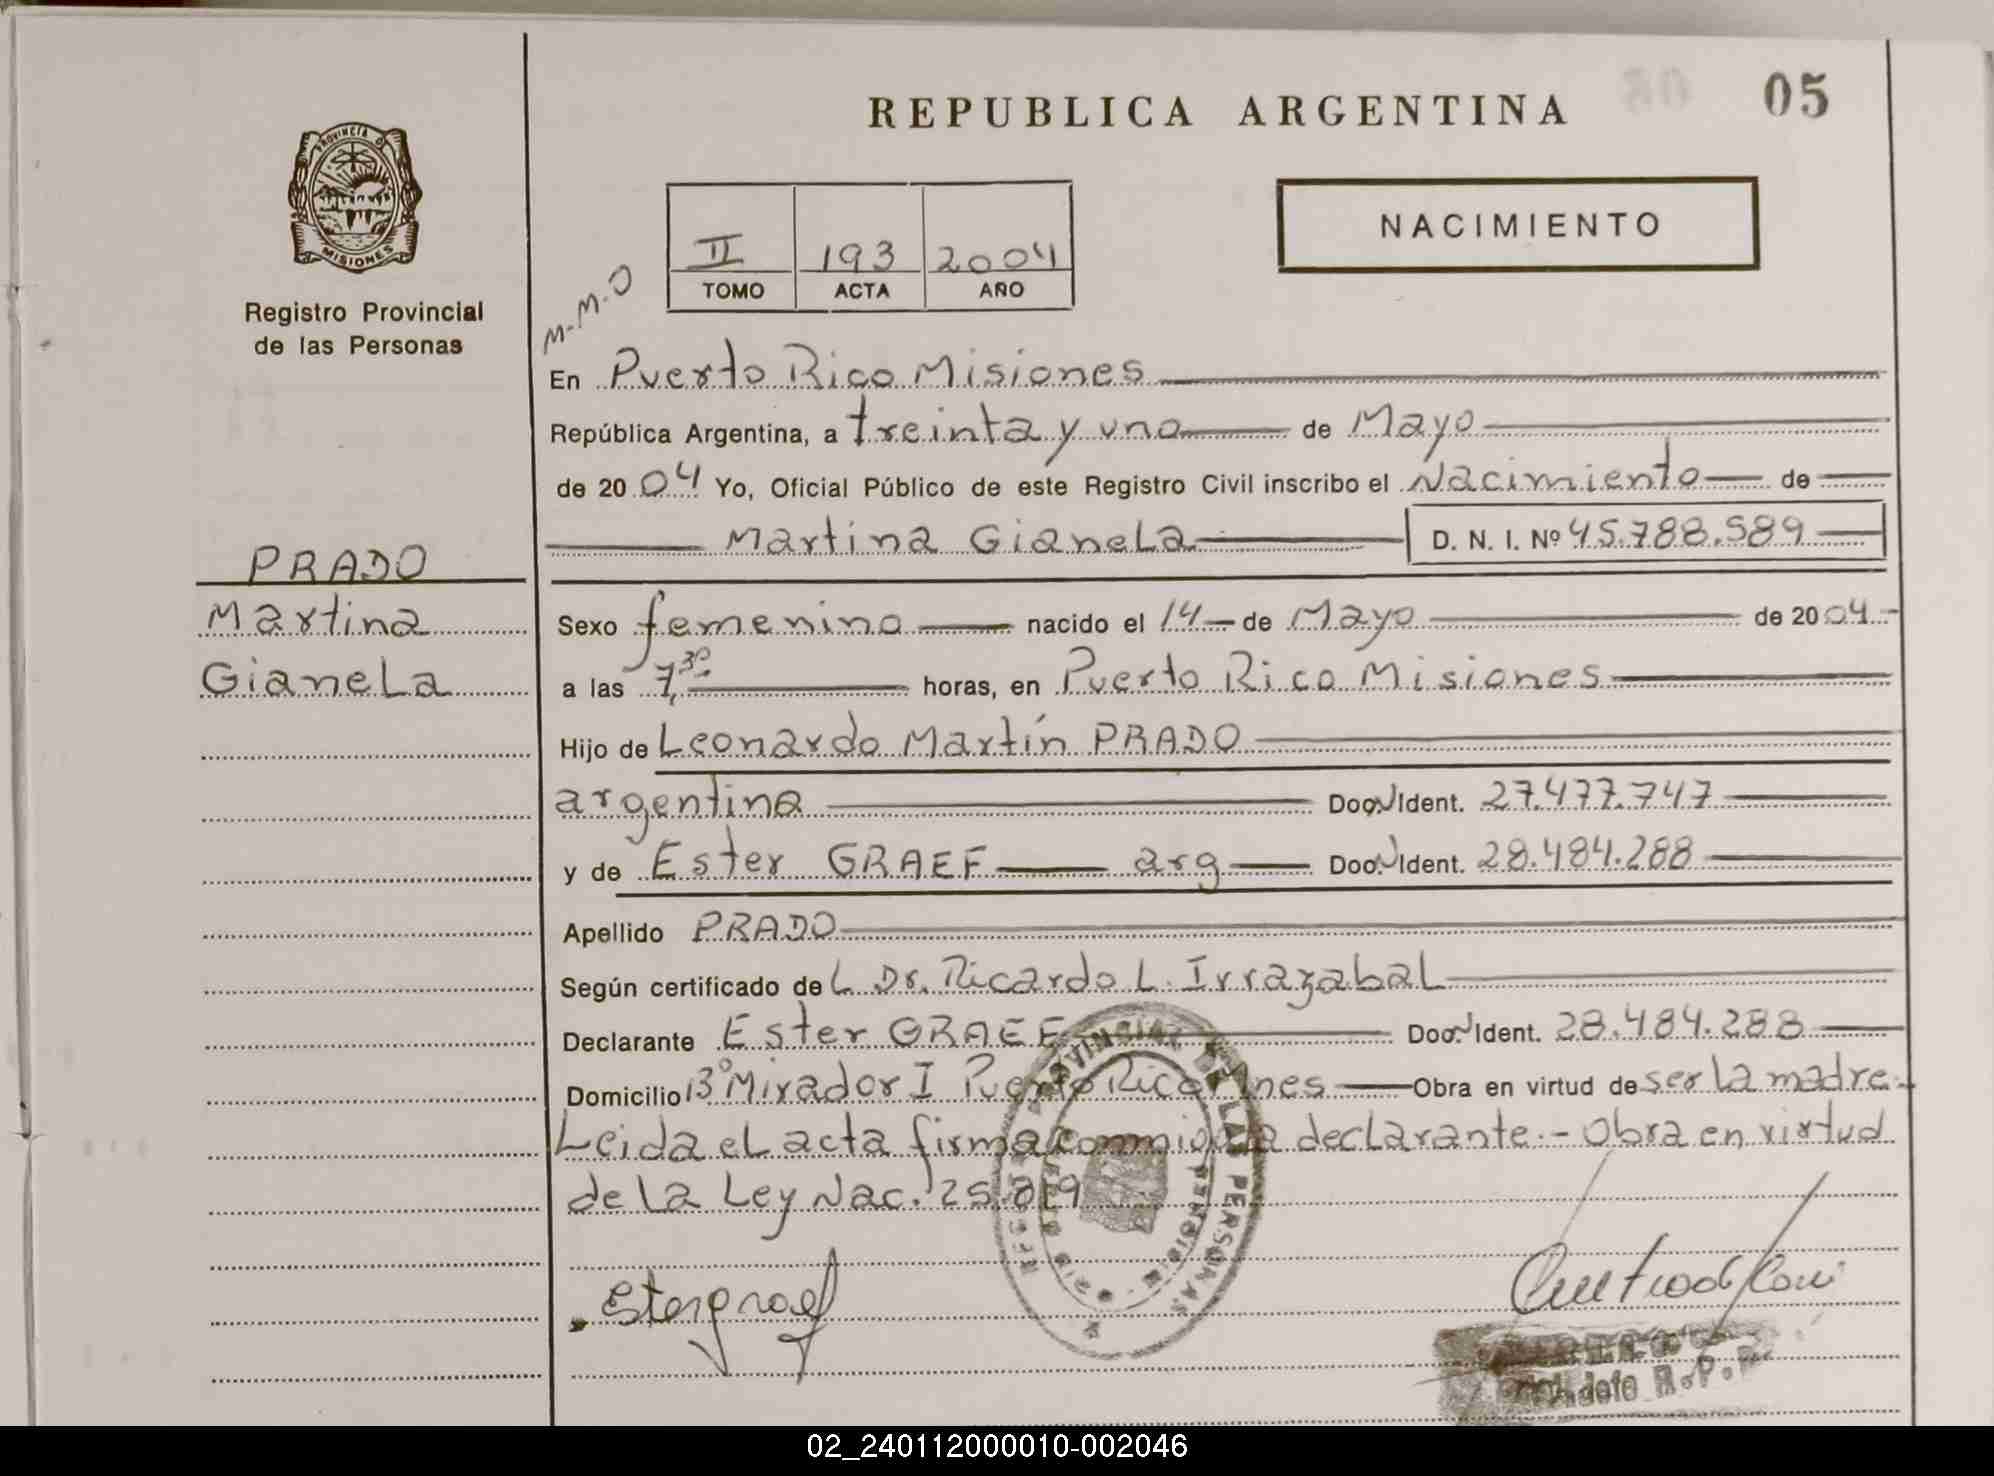 REPUBLICA ARGENTINA
05
PROVINCIA D
MISIONES
Registro Provincial
de las Personas
II 193 2004
TOMO ACTA AÑO
NACIMIENTO
M.M.O
En Puerto Rico Misiones
República Argentina, a treinta y uno de Mayo
de 2004 Yo, Oficial Público de este Registro Civil inscribo el Nacimiento de
Martina Gianela D. N. I. Nº 45.788.589
PRADO
Martina
Gianela
Sexo femenino nacido el 14 de Mayo de 2004.-
a las 7,30 horas, en Puerto Rico Misiones
Hijo de Leonardo Martín PRADO
argentina Doc. Ident. 27.477.747
y de Ester GRAEF arg Doc. Ident. 28.484.288
Apellido PRADO
Según certificado de L Dr. Ricardo L. Irrazabal
Declarante Ester GRAEF Doc. Ident. 28.484.288
Domicilio Bº Mirador I Puerto Rico Mnes Obra en virtud de ser la madre.-
Leida el acta firma conmigo la declarante.- Obra en virtud
de la Ley Nac. 25.819
PROVINCIAL DE LAS PERSONAS
MISIONES
Ester graef
R.P.P
02_240112000010-002046